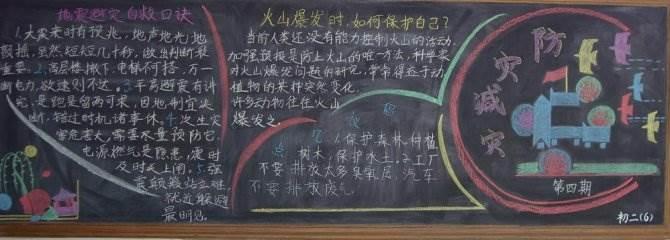 地震避灾自救口诀
1.大震来时有预兆,地声地光地
颤摇,虽然短短几十秒,做出判断最
重要.2.高层楼撤下,电梯不可搭,万一
断电力,欲速则不达.3.平房避震有讲
究,是跑是留两可求,因地制宜决
断,错过时机诸事休.4.次生灾
害危害大,需要尽量预防它,
电源燃气是隐患,震时
及时关上闸.5.强
震颠簸站立难,
就近躲避
最明见.
火山爆发时,如何保护自己?
当前人类还没有能力控制火山的活动,
加强预报是防止火山的唯一方法,科学家
对火山爆发问题的研究,常常得益于动
植物的某种突然变化,
许多动物往往在火山
爆发之
1.保护森林,种植
树木,保护水土.2.工厂
不要排放太多臭氧层,汽车
不要排放废气.
防
灾
减
灾
第四期
初二(6)